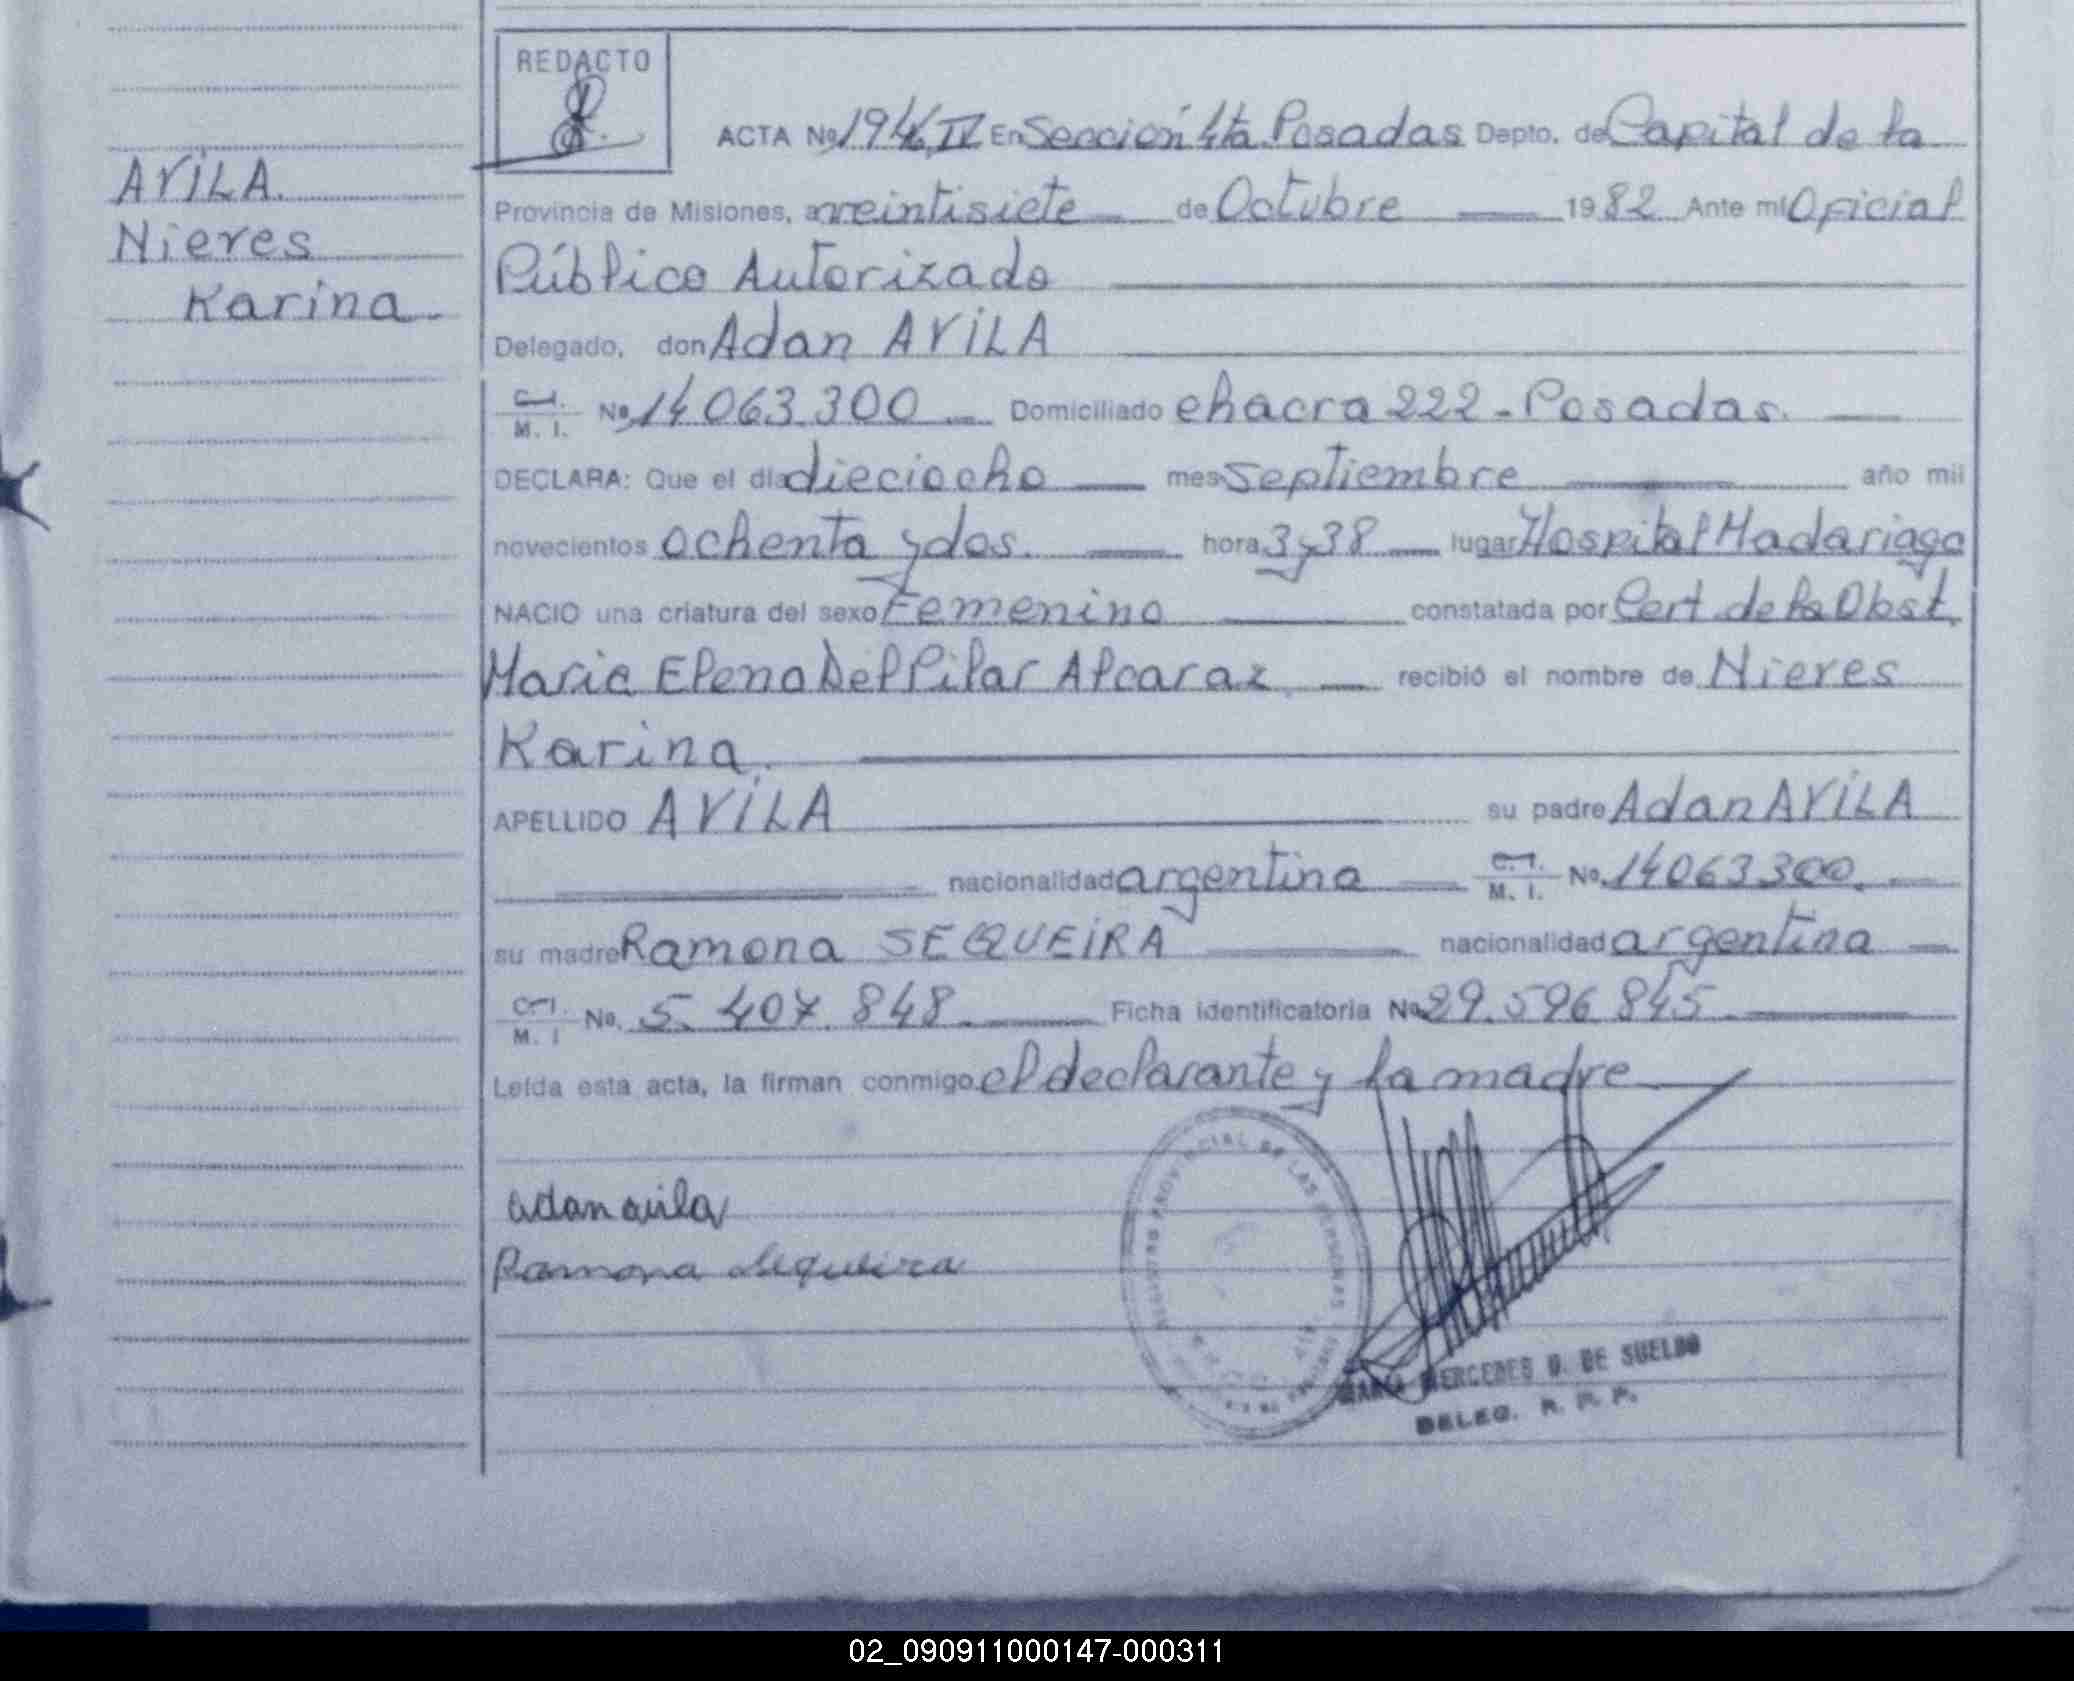 REDACTO
ACTA No 194, IV En Sección 4ta Posadas Depto. de Capital de la
AVILA
Provincia de Misiones, a veintisiete de Octubre 1982 Ante mí Oficial
Nieres
Público Autorizado
Karina
Delegado, don Adan AVILA
C.I. M. I. No 14.063.300 Domiciliado chacra 222 - Posadas.
DECLARA: Que el día dieciocho mes septiembre año mil
novecientos ochenta y dos. hora 3 y 38 lugar Hospital Madariaga
NACIO una criatura del sexo Femenino constatada por Cert. de la Obst.
Maria Elena Del Pilar Alcaraz recibió el nombre de Nieres
Karina.
APELLIDO AVILA su padre Adan AVILA
nacionalidad argentina C.I. M. I. No. 14063300.
su madre Ramona SEQUEIRA nacionalidad argentina
C.I. M. I No. 5.407.848 Ficha identificatoria No 29.596.845
Leída esta acta, la firman conmigo el declarante y la madre
adan avila
Ramona Sequeira
REGISTRO PROVINCIAL DE LAS PERSONAS
MARIA MERCEDES D. DE SUELDO
DELEG. R. P. P.
02_090911000147-000311